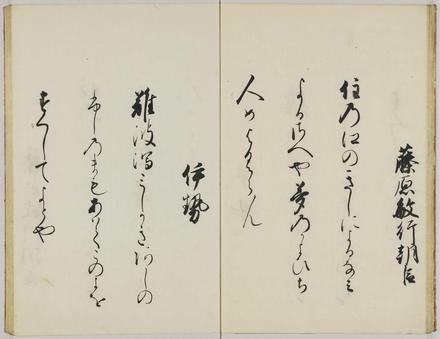 藤原敏行朝臣
住乃江のきしによるなミ
よるさへや夢乃かよひち
人めよくらん
伊勢
難波潟みしかきあしの
ふしのまもあはてこのよを
すくしてよとや